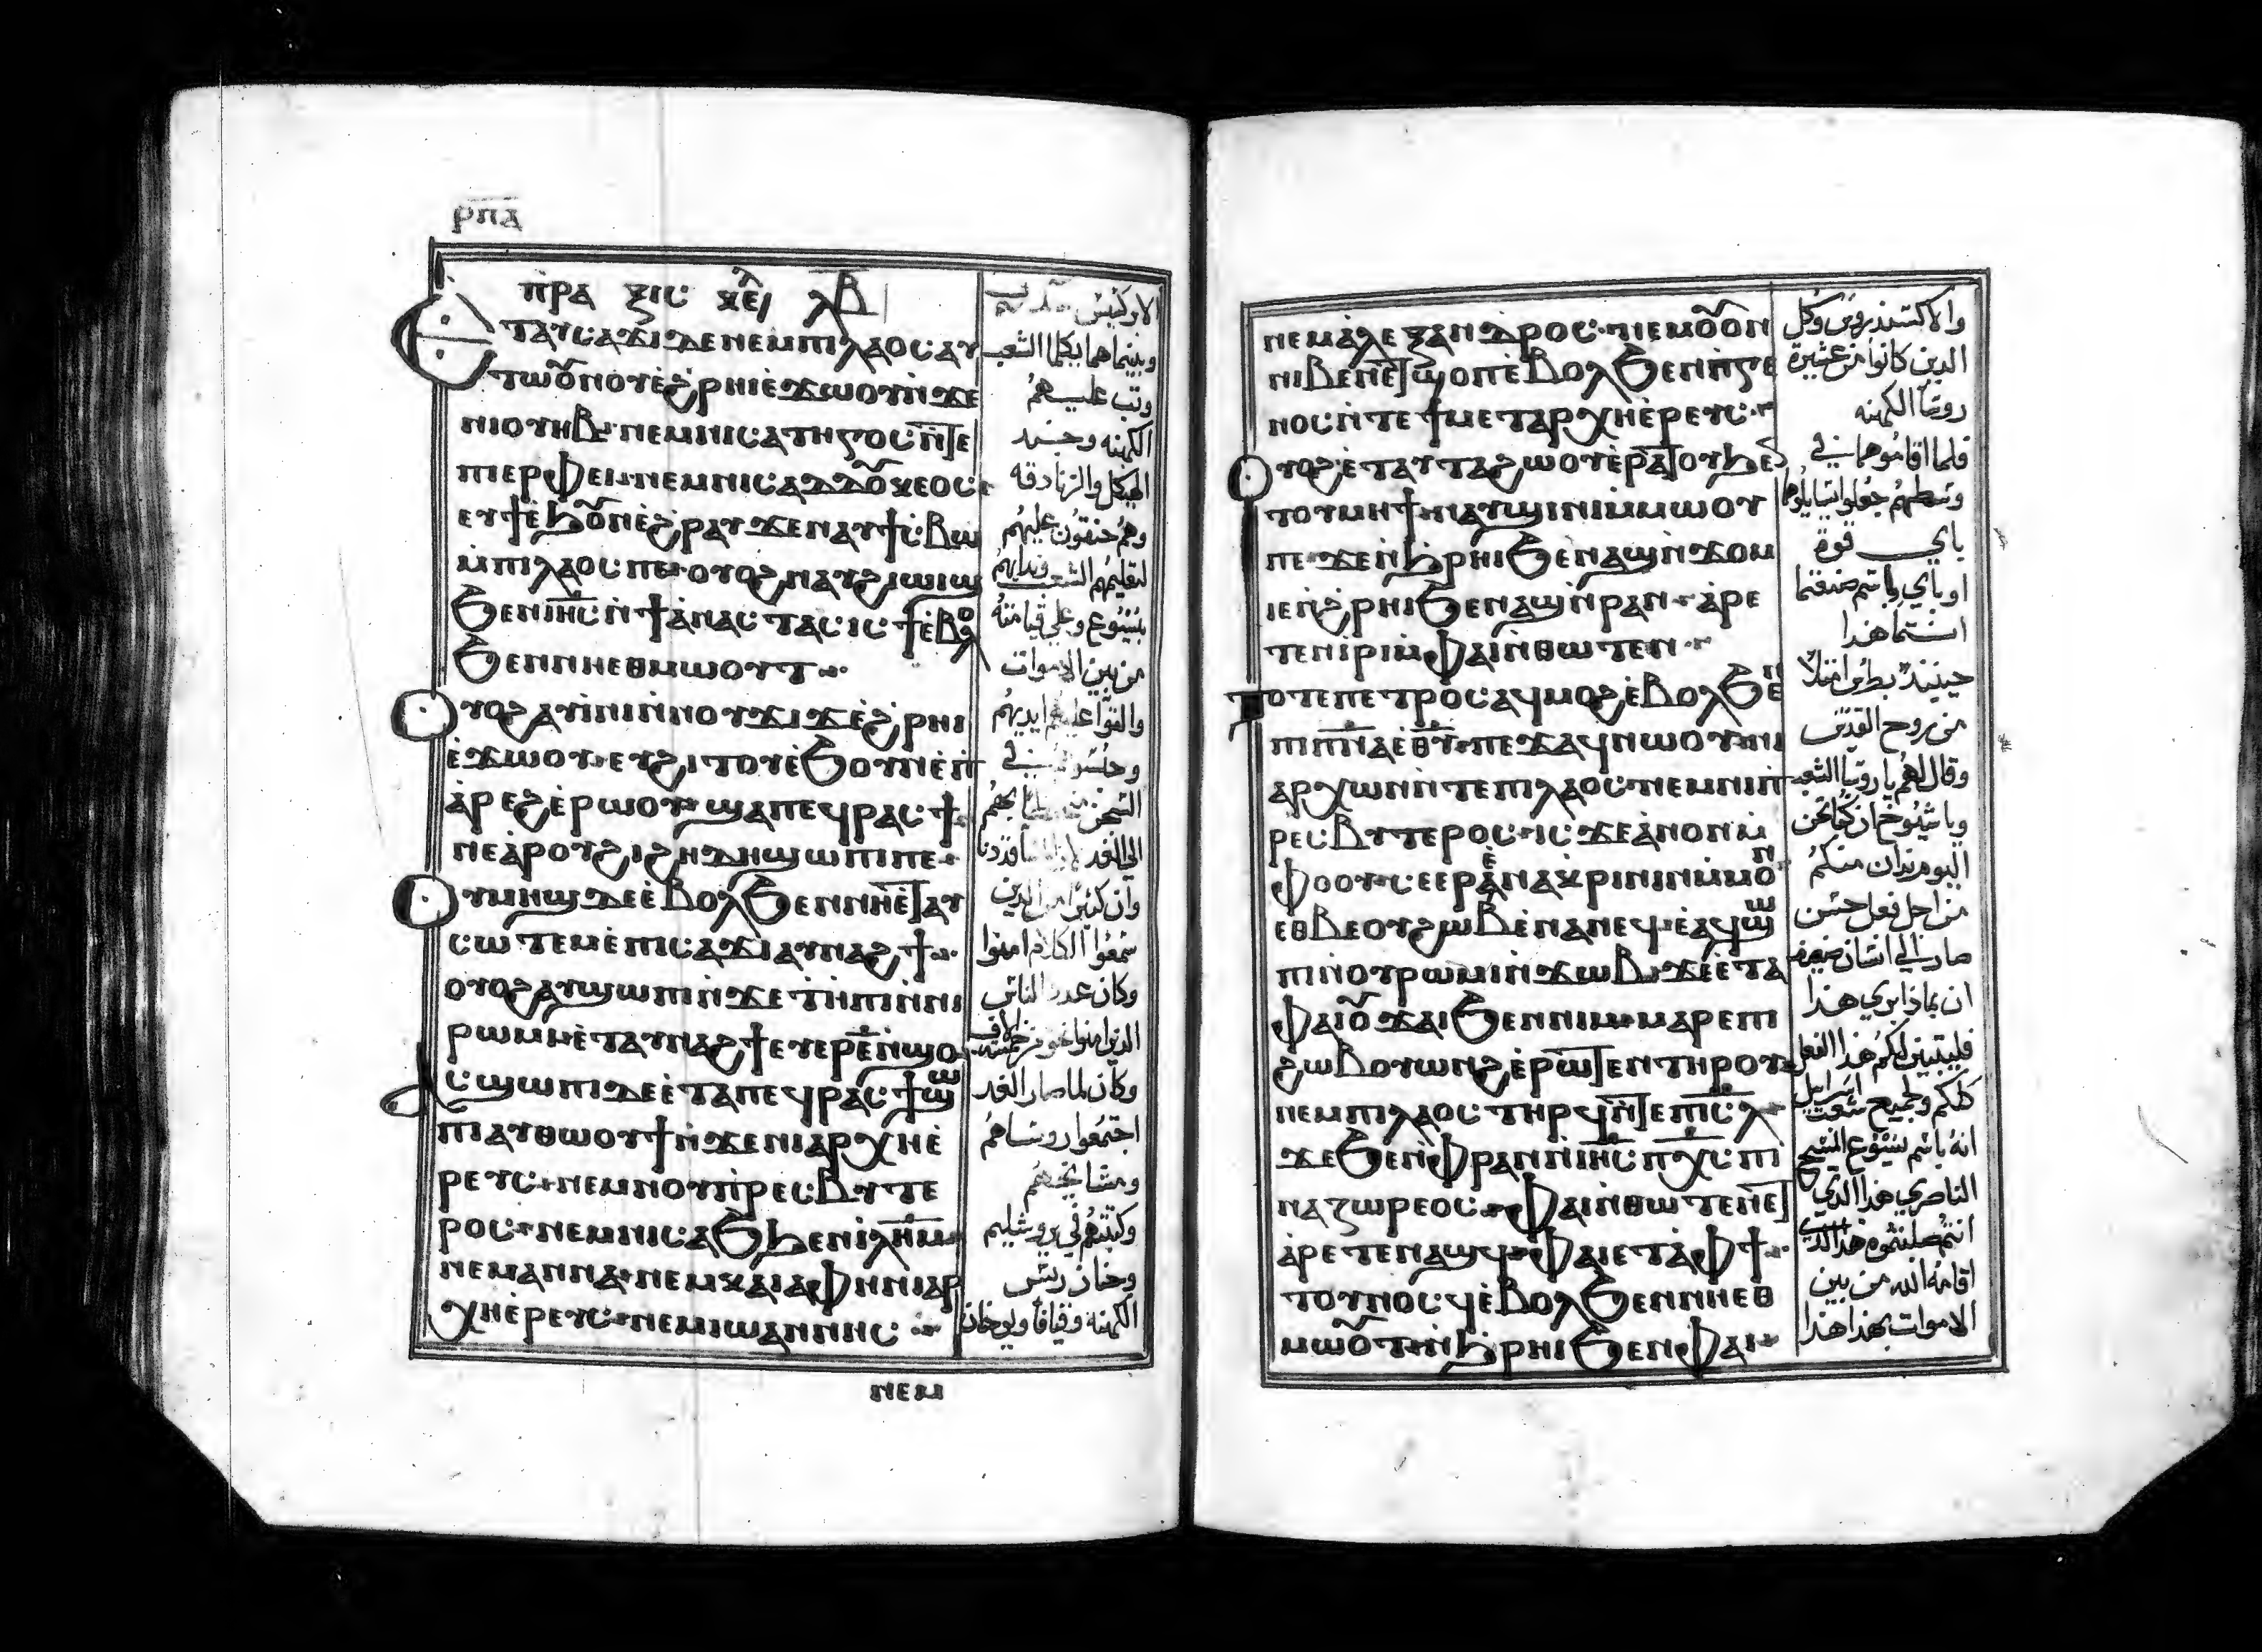 ⲣⲡⲁ
ⲡⲣⲁ ⲝⲓⲥ ⲗⲃ
ⲉⲩⲥⲁϫⲓ ⲇⲉ ⲛⲉⲙ ⲡⲓⲗⲁⲟⲥ ⲁⲩ
ⲧⲱⲟⲩⲛⲟⲩ ⲉ̀ϩⲣⲏⲓ ⲉ̀ϫⲱⲟⲩ ⲛ̀ϫⲉ
ⲛⲓⲟⲩⲏⲃ ⲛⲉⲙ ⲛⲓⲥⲁⲧⲏⲅⲟⲥ ⲛ̀ⲧⲉ
ⲡⲓⲉⲣⲫⲉⲓ ⲛⲉⲙ ⲛⲓⲥⲁⲇⲇⲟⲩⲕⲉⲟⲥ
ⲉⲩϯ ⲉ̀ϧⲟⲩⲛ ⲉ̀ϩⲣⲁⲩ ϫⲉ ⲛⲁⲩϯⲥⲃⲱ
ⲙ̀ⲡⲓⲗⲁⲟⲥ ⲡⲉ ⲟⲩⲟϩ ⲛⲁⲩϩⲓⲱⲓϣ
ϧⲉⲛ ⲓⲏⲥ ⲛ̀ϯⲁⲛⲁⲥⲧⲁⲥⲓⲥ ϯⲉ̀ⲃⲟⲗ
ϧⲉⲛ ⲛⲏⲉⲑⲙⲱⲟⲩⲧ
ⲟⲩⲟϩ ⲁⲩⲓ̀ⲛⲓ ⲛ̀ⲛⲟⲩϫⲓϫ ⲉ̀ϩⲣⲏⲓ
ⲉ̀ϫⲱⲟⲩ ⲉⲩϩⲓⲧⲟⲩ ⲉ̀ϧⲟⲩⲛ ⲉ̀ⲡ
ⲁ̀ⲣⲉϩ ⲉ̀ⲣⲱⲟⲩ ϣⲁ ⲡⲉϥⲣⲁⲥϯ
ⲛⲉ ⲁ̀ⲣⲟⲩϩⲓ ϩⲏⲇⲏ ϣⲱⲡⲓ ⲡⲉ
ⲟⲩⲙⲏϣ ⲇⲉ ⲉ̀ⲃⲟⲗ ϧⲉⲛ ⲛⲏⲉ̀ⲧⲁⲩ
ⲥⲱⲧⲉⲙ ⲉ̀ⲡⲓⲥⲁϫⲓ ⲁⲩⲛⲁϩϯ
ⲟⲩⲟϩ ⲁⲩϣⲱⲡⲓ ⲛ̀ϫⲉ ϯⲏⲡⲓ ⲛ̀ⲛⲓ
ⲣⲱⲙⲓ ⲉ̀ⲧⲁⲩⲛⲁϩϯ ⲉⲩⲉⲣ ⲉ̄ ⲛ̀ϣⲟ
ⲥϣⲱⲡⲓ ⲇⲉ ⲉ̀ⲧⲁ ⲡⲉϥⲣⲁⲥϯ ϣⲱ
ⲡⲓ ⲁⲩⲑⲱⲟⲩϯ ⲛ̀ϫⲉ ⲛⲓⲁⲣⲭⲏⲉ̀
ⲣⲉⲩⲥ ⲛⲉⲙ ⲛⲟⲩⲡⲣⲉⲥⲃⲩⲧⲉ
ⲣⲟⲥ ⲛⲉⲙ ⲛⲓⲥⲁϧ ϧⲉⲛ ⲓⲗⲏⲙ
ⲛⲉⲙ ⲁⲛⲛⲁ ⲛⲉⲙ ⲕⲁⲓⲁⲫⲏ ⲛⲓⲁⲣ
ⲭⲏⲉ̀ⲣⲉⲩⲥ ⲛⲉⲙ ⲓⲱⲁⲛⲛⲏⲥ
ⲛⲉⲙ
وبينماهما يكلما الشعب
وثب عليهم
الكهنه وجند
الهيكل والزنادقه
وهم حنقون عليهم
لتعليمهم الشعب وندايهم
بيسوع وعلي قيامته
من بين الاموات
والقوا عليهم ايديهم
وان كثيرا من الذين
سمعوا الكلام امنوا
وكان عدد الناس
الذين امنوا نحو من خمسه الاف
وكان لما صار الغد
اجتمعوا روساهم
ومشايخهم
وكتبتهم في يروشليم
وحنان ريس
الكهنه وقيافا ويوحنان
ⲛⲉⲙ ⲁ̀ⲗⲉⲝⲁⲛⲇⲣⲟⲥ ⲛⲉⲙ ⲟⲩⲟⲛ
ⲛⲓⲃⲉⲛ ⲉ̀ⲧϣⲟⲡ ⲉ̀ⲃⲟⲗ ϧⲉⲛ ⲡ̀ⲅⲉ
ⲛⲟⲥ ⲛ̀ⲧⲉ ϯⲙⲉⲧⲁⲣⲭⲏⲉ̀ⲣⲉⲩⲥ
ⲟⲩⲟϩ ⲉ̀ⲧⲁⲩⲧⲁϩⲱⲟⲩ ⲉ̀ⲣⲁⲧⲟⲩ ϧⲉⲛ
ⲧⲟⲩⲙⲏϯ ⲛⲁⲩϣⲓⲛⲓ ⲙ̀ⲙⲱⲟⲩ
ⲡⲉ ϫⲉ ⲛ̀ϧⲣⲏⲓ ϧⲉⲛ ⲁϣ ⲛ̀ϫⲟⲙ
ⲓⲉ ⲛ̀ϩⲣⲏⲓ ϧⲉⲛ ⲁϣ ⲛ̀ⲣⲁⲛ ⲁ̀ⲣⲉ
ⲧⲉⲛⲓ̀ⲣⲓ ⲙ̀ⲫⲁⲓ ⲛ̀ⲑⲱⲧⲉⲛ
ⲧⲟⲧⲉ ⲡⲉⲧⲣⲟⲥ ⲁϥⲙⲟϩ ⲉ̀ⲃⲟⲗ ϧⲉⲛ
ⲡⲓⲡⲛⲁ ⲉⲑⲩ ⲡⲉϫⲁϥ ⲛⲱⲟⲩ ⲛⲓ
ⲁⲣⲭⲱⲛ ⲛ̀ⲧⲉ ⲡⲓⲗⲁⲟⲥ ⲛⲉⲙ ⲛⲓⲡ
ⲣⲉⲥⲃⲩⲧⲉⲣⲟⲥ ⲓⲥϫⲉ ⲁ̀ⲛⲟⲛ ⲙ̀
ⲫⲟⲟⲩ ⲥⲉⲉⲣⲁⲛⲁⲕⲣⲓⲛⲓⲛ ⲙ̀ⲙⲟⲛ
ⲉⲑⲃⲉ ⲟⲩϩⲱⲃ ⲉ̀ⲛⲁⲛⲉϥ ⲉ̀ⲁϥϣⲱ
ⲡⲓ ⲛ̀ⲟⲩⲣⲱⲙⲓ ⲛ̀ϫⲱⲃ ϫⲉ ⲉ̀ⲧⲁ
ⲫⲁⲓ ⲟⲩϫⲁⲓ ϧⲉⲛ ⲛⲓⲙ ⲙⲁⲣⲉ ⲡⲓ
ϩⲱⲃ ⲟⲩⲱⲛϩ ⲉ̀ⲣⲱⲧⲉⲛ ⲧⲏⲣⲟⲩ
ⲛⲉⲙ ⲡⲓⲗⲁⲟⲥ ⲧⲏⲣϥ ⲛ̀ⲧⲉ ⲡⲓⲥⲗ
ϫⲉ ϧⲉⲛ ⲫⲣⲁⲛ ⲛ̀ⲓⲏⲥ ⲡⲭⲥ ⲡⲓ
ⲛⲁⲍⲱⲣⲉⲟⲥ ⲫⲁⲓ ⲛ̀ⲑⲱⲧⲉⲛ ⲉ̀ⲧ
ⲁ̀ⲣⲉⲧⲉⲛⲁϣϥ ⲫⲁⲓ ⲉ̀ⲧⲁ ⲫϯ
ⲧⲟⲩⲛⲟⲥϥ ⲉ̀ⲃⲟⲗ ϧⲉⲛ ⲛⲏⲉⲑ
ⲙⲱⲟⲩⲧ ⲛ̀ϧⲣⲏⲓ ϧⲉⲛ ⲫⲁⲓ
والاكسندروس وكل
الدين كانوا من عشيرة
روسا الكهنه
فلما اقاموهما في
وسطهم جعلوا يسايلوهما
باي قوة
او باي باسم صنعتما
انتما هذا
حينيذ بطرس امتلا
من روح القدس
وقال لهم يا روسا الشعب
ويا شيوخ ان كنا نحن
اليوم ندان منكم
من اجل فعل حسن
صار الي انسان ضعيف
ان بماذا بري هذا
فليتبين لكم هذا الفعل
كلكم ولجميع شعب اسرايل
انه باسم يسوع المسيح
الناصري هذا الدي
انتم صلبتموه هذا الدي
اقامه الله من بين
الاموات بهذا هذا